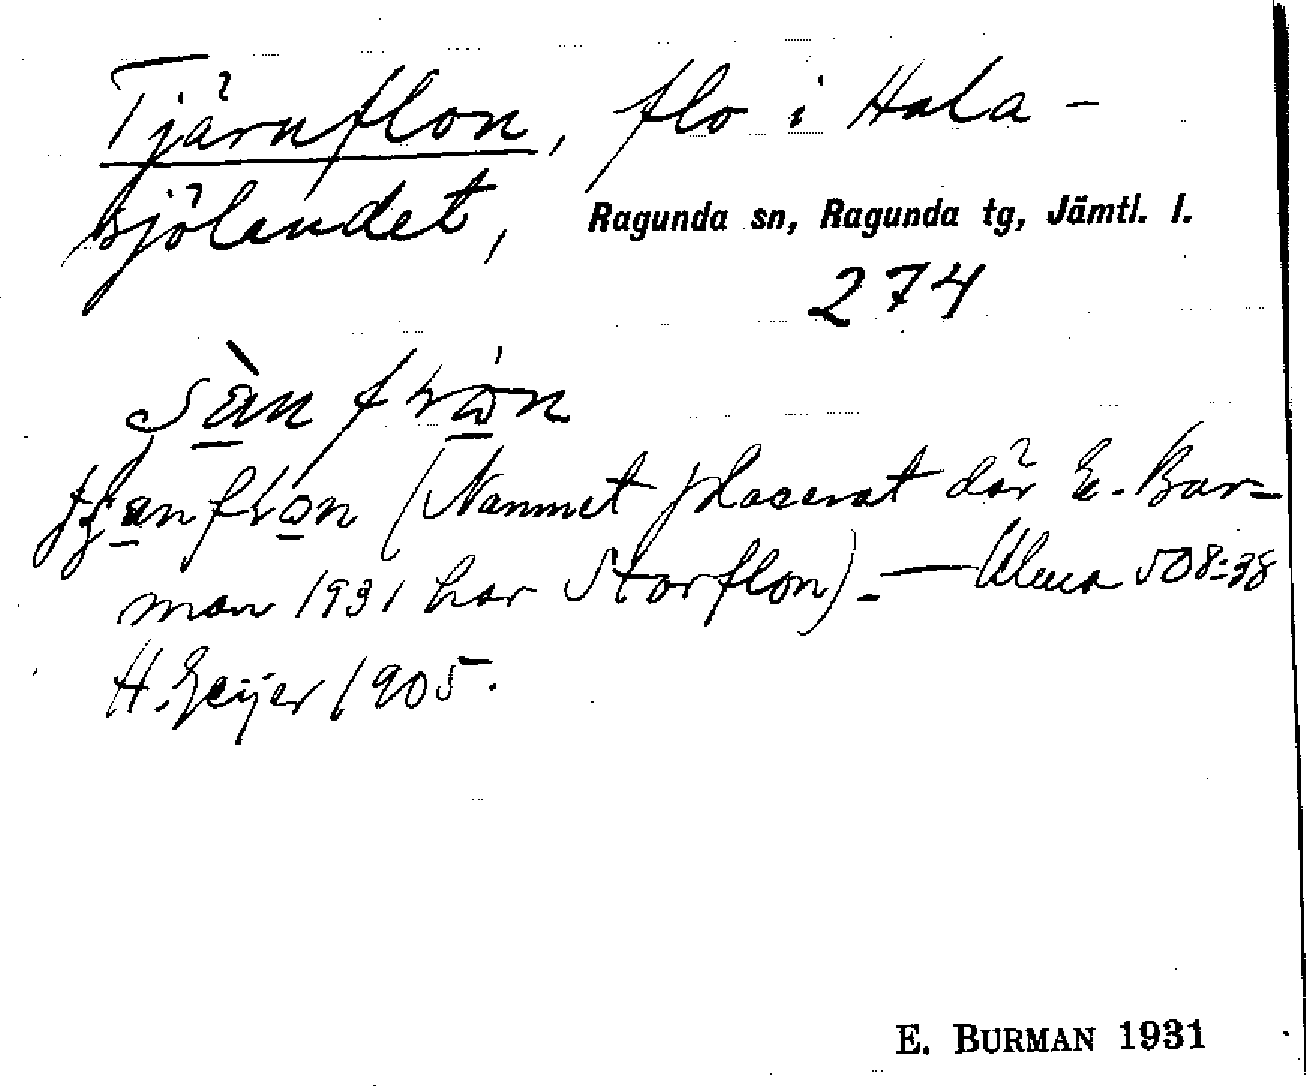 Tjärnflon, flo i Hola-
sjölandet, Ragunda sn, Ragunda tg, Jämtl. l.
274
(Namnet placerat där E. Bur-
man 1931 har Storflon). — Ulma 508:38
H. Geijer 1905.
E. BURMAN 1931